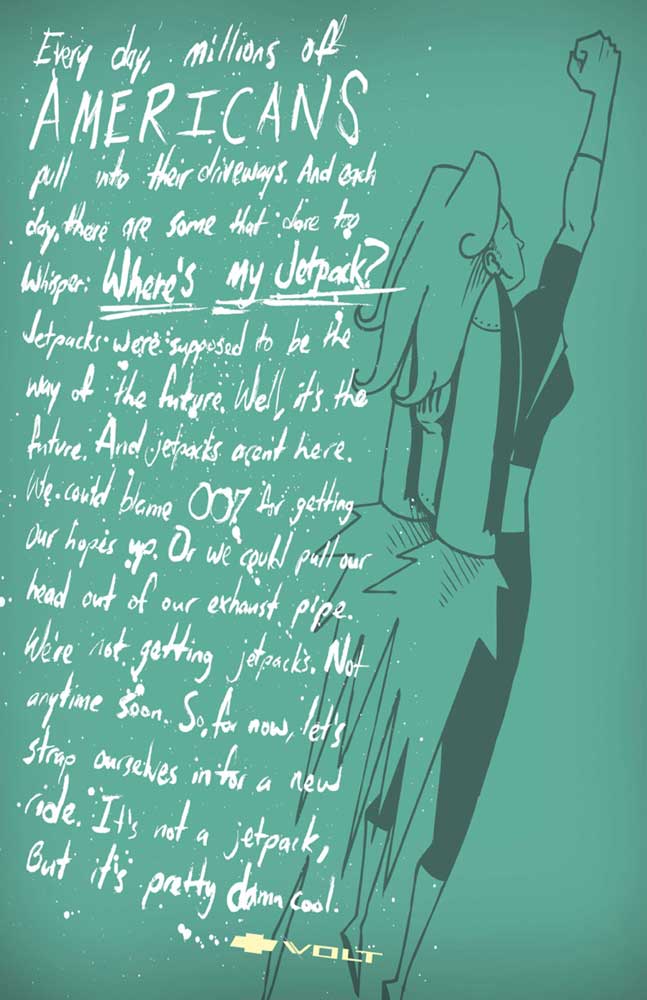 Every day, millions of
AMERICANS
pull into their driveways. And each
day, there are some that dare to
whisper: Where's my Jetpack?
Jetpacks were supposed to be the
way of the future. Well, it's the
future. And jetpacks aren't here.
We could blame 007 for getting
our hopes up. Or we could pull our
head out of our exhaust pipe.
We're not getting jetpacks. Not
anytime soon. So, for now, let's
strap ourselves in for a new
ride. It's not a jetpack,
But it's pretty damn cool.
VOLT